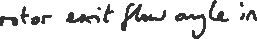 rotor exit flow angle in